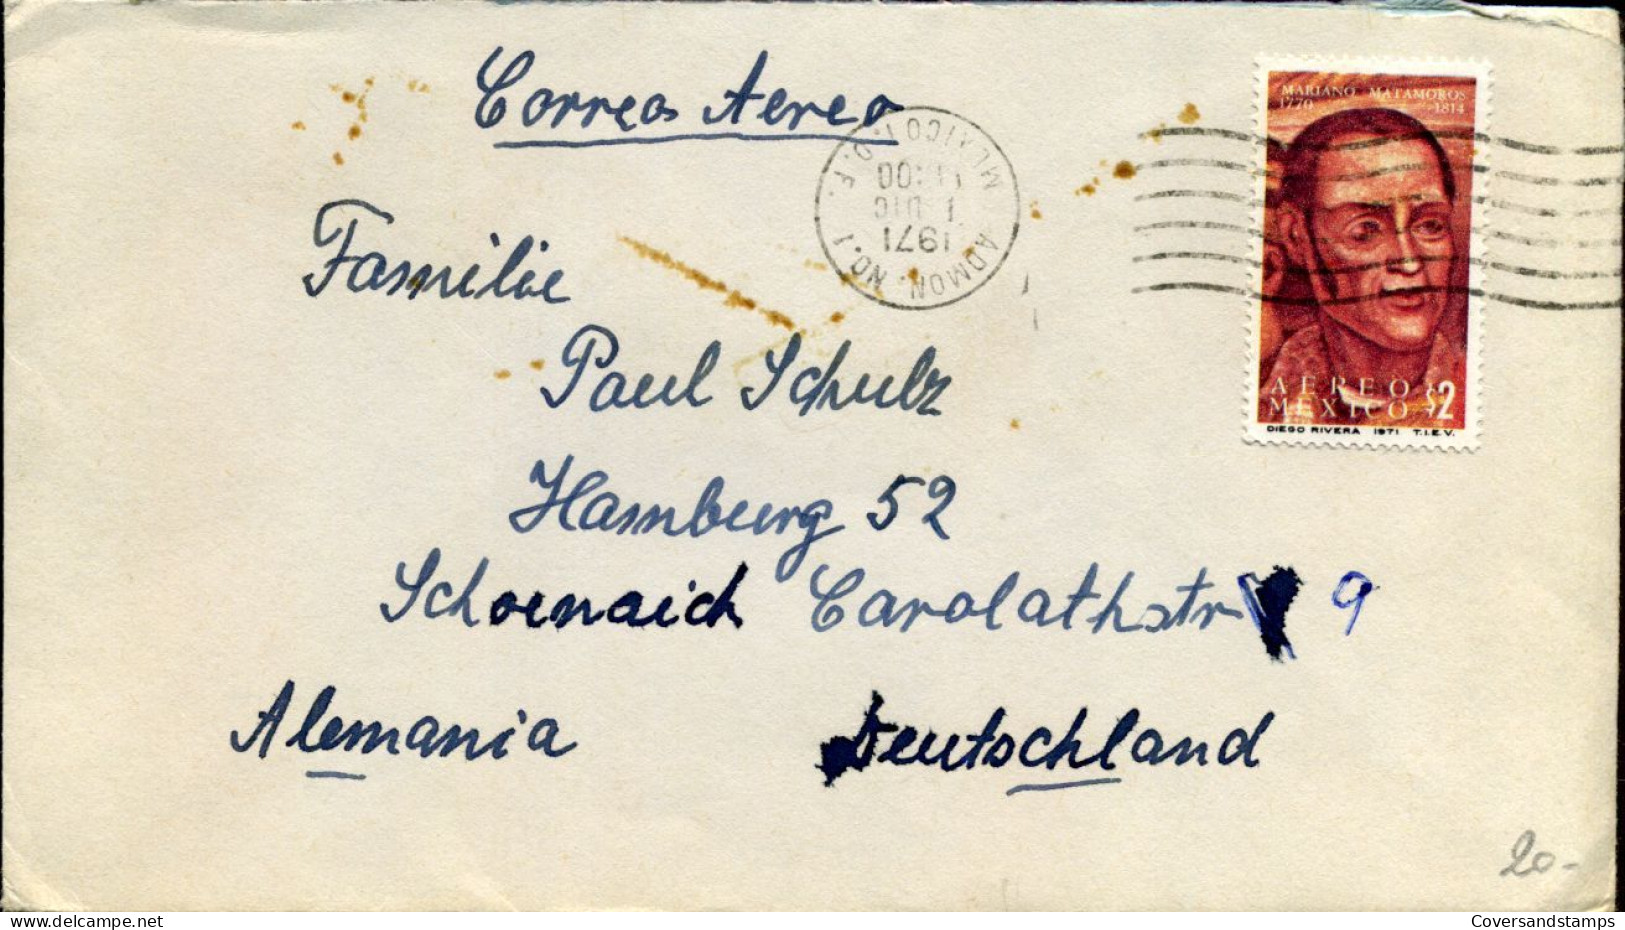 Correos Aereo
MEXICO 1, D.F.
ADMON. NO. 1
11:00
1 DIC
1971
MARIANO MATAMOROS
1770 1814
AEREO
MEXICO $2
DIEGO RIVERA 1971 T.I.E.V.
Familie
Paul Schulz
Hamburg 52
Schoenaich Carolathstr 9
Alemania Deutschland
20-
Coversandstamps